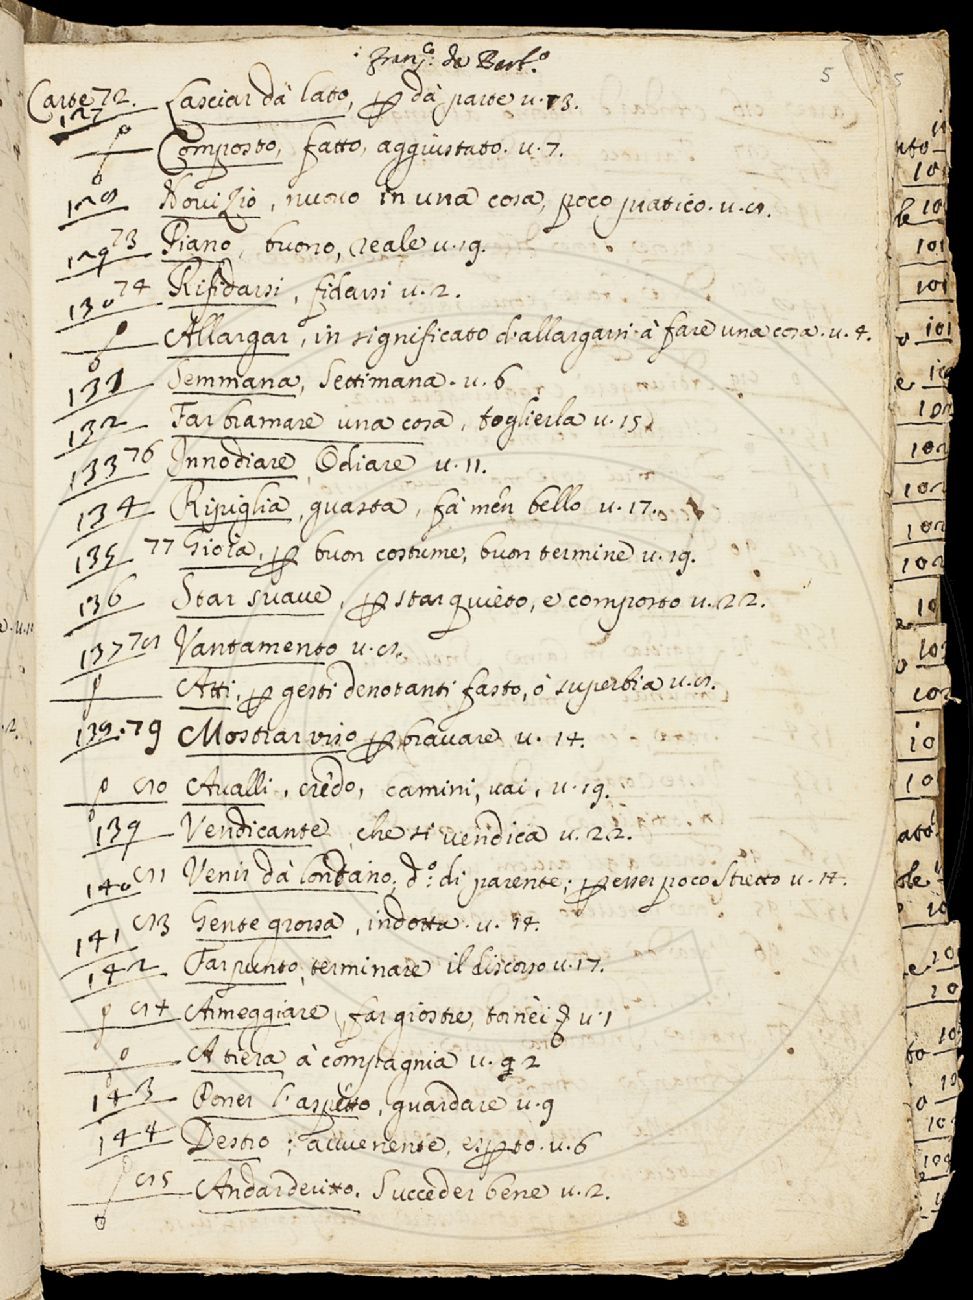 Franc.º da Barb.º
5
Carte 72.
127 Lasciar dà lato, p dà parte u. 13.
Composto, fatto, aggiustato. u. 7.
128 Novizio, nuovo in una cosa, poco pratico. u. 8.
129 73 Piano, buono, reale u. 19.
130 74 Rifidarsi, fidarsi u. 2.
Allargar, in significato d'allargarsi à fare una cosa. u. 4.
131 Semmana, Settimana. u. 6
132 Far bramare una cosa, toglierla u. 15
133 76 Innodiare, Odiare u. 11.
134 Ripiglia, guasta, fà men bello u. 17.
135 77 Gioia, p buon costume, buon termine u. 19.
136 Star suave, p star quieto, e composto u. 22.
137 78 Vantamento u. 8.
Atti, p gesti denotanti fasto, ò superbia u. 8.
138. 79 Mostrar viso p bravare u. 14.
80 Avalli, credo, camini, vai, u. 19.
139 Vendicante, che si vendica u. 22.
140 81 Venir dà lontano, d.º di parente, p esser poco stretto u. 14.
141 83 Gente grossa, indotta. u. 14.
142 Far punto, terminare il discorso u. 17.
84 Armeggiare, far giostre, tornèi u. 1
A tiera à compagnia u. 2
143 Poner l'aspetto, guardare u. 9
144 Destro, avvenente, esperto. u. 6
85 Andar deritto. Succeder bene u. 2.